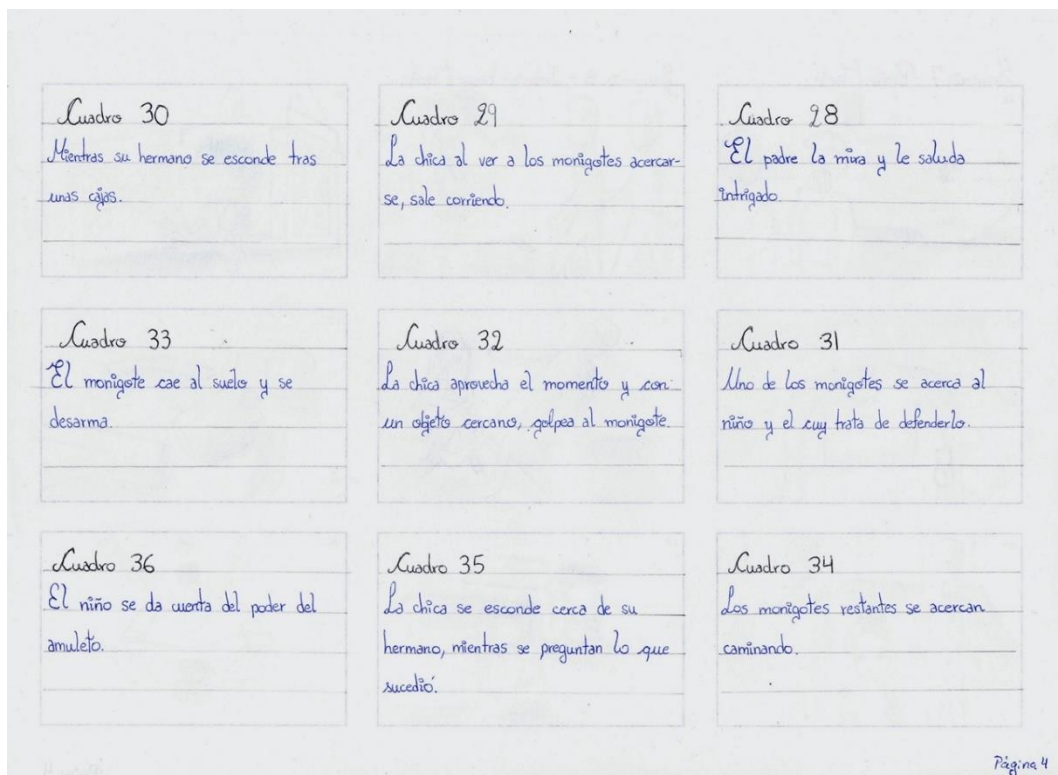 Cuadro 30
Mientras su hermano se esconde tras
unas cajas.
Cuadro 29
La chica al ver a los monigotes acercar-
se, sale corriendo.
Cuadro 28
El padre la mira y le saluda
intrigado.
Cuadro 33
El monigote cae al suelo y se
desarma.
Cuadro 32
La chica aprovecha el momento y con
un objeto cercano, golpea al monigote.
Cuadro 31
Uno de los monigotes se acerca al
niño y el cuy trata de defenderlo.
Cuadro 36
El niño se da cuenta del poder del
amuleto.
Cuadro 35
La chica se esconde cerca de su
hermano, mientras se preguntan lo que
sucedió.
Cuadro 34
Los monigotes restantes se acercan
caminando.
Página 4